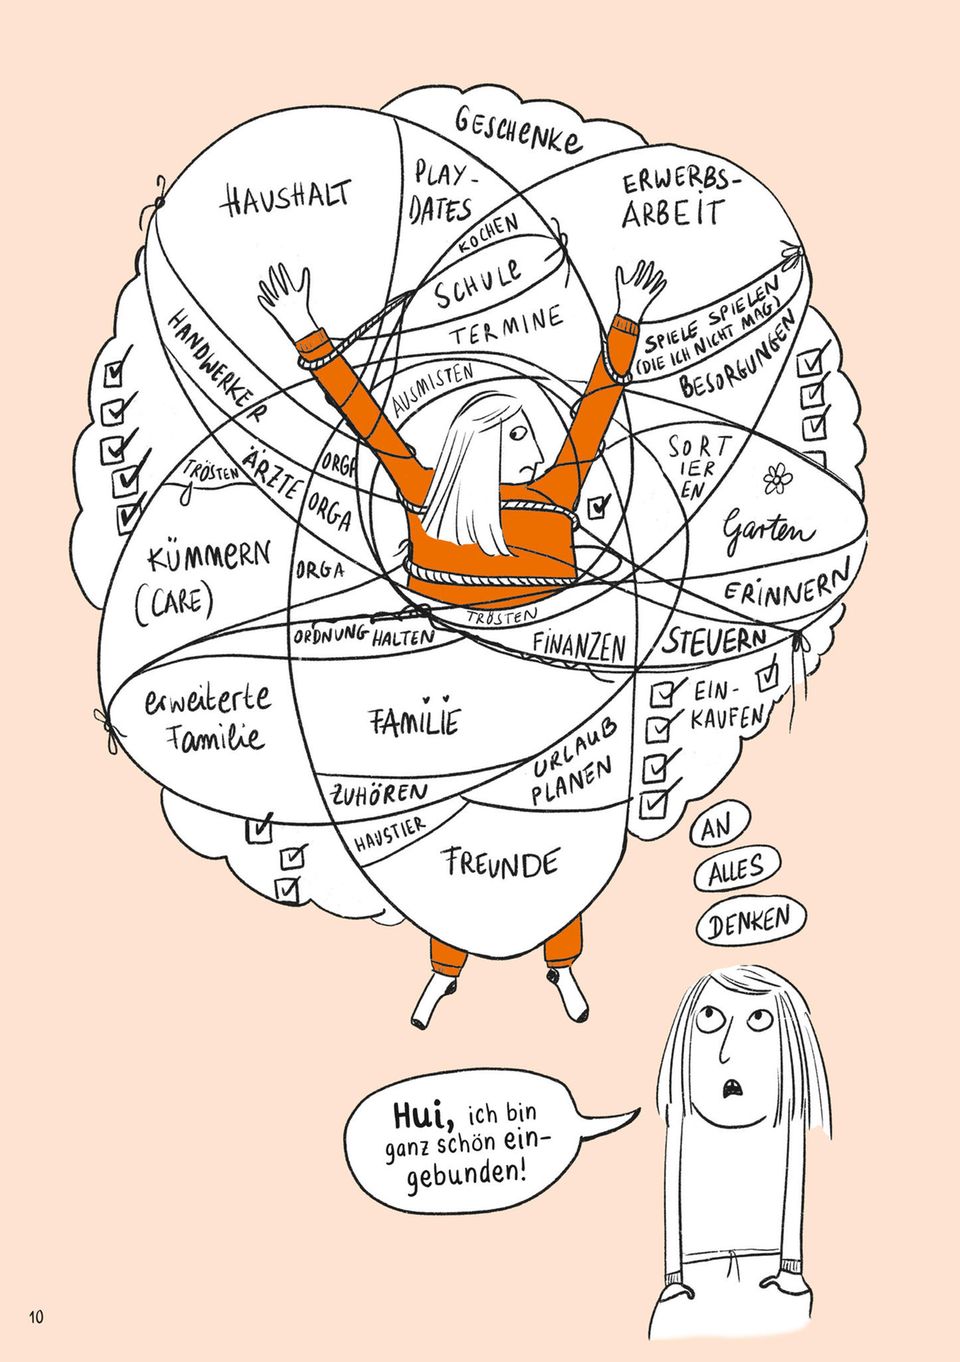 GESCHENKE
HAUSHALT
PLAY-
DATES
ERWERBS-
ARBEIT
KOCHEN
SCHULE
TERMINE
SPIELE SPIELEN
(DIE ICH NICHT MAG)
BESORGUNGEN
HANDWERKER
AUSMISTEN
TRÖSTEN
ÄRZTE
ORGA
ORGA
ORGA
SORT
IER
EN
Garten
KÜMMERN
(CARE)
ERINNERN
TRÖSTEN
ORDNUNG HALTEN
FINANZEN
STEUERN
erweiterte
Familie
FAMILIE
EIN-
KAUFEN
URLAUB
PLANEN
ZUHÖREN
HAUSTIER
FREUNDE
AN
ALLES
DENKEN
Hui, ich bin
ganz schön ein-
gebunden!
10